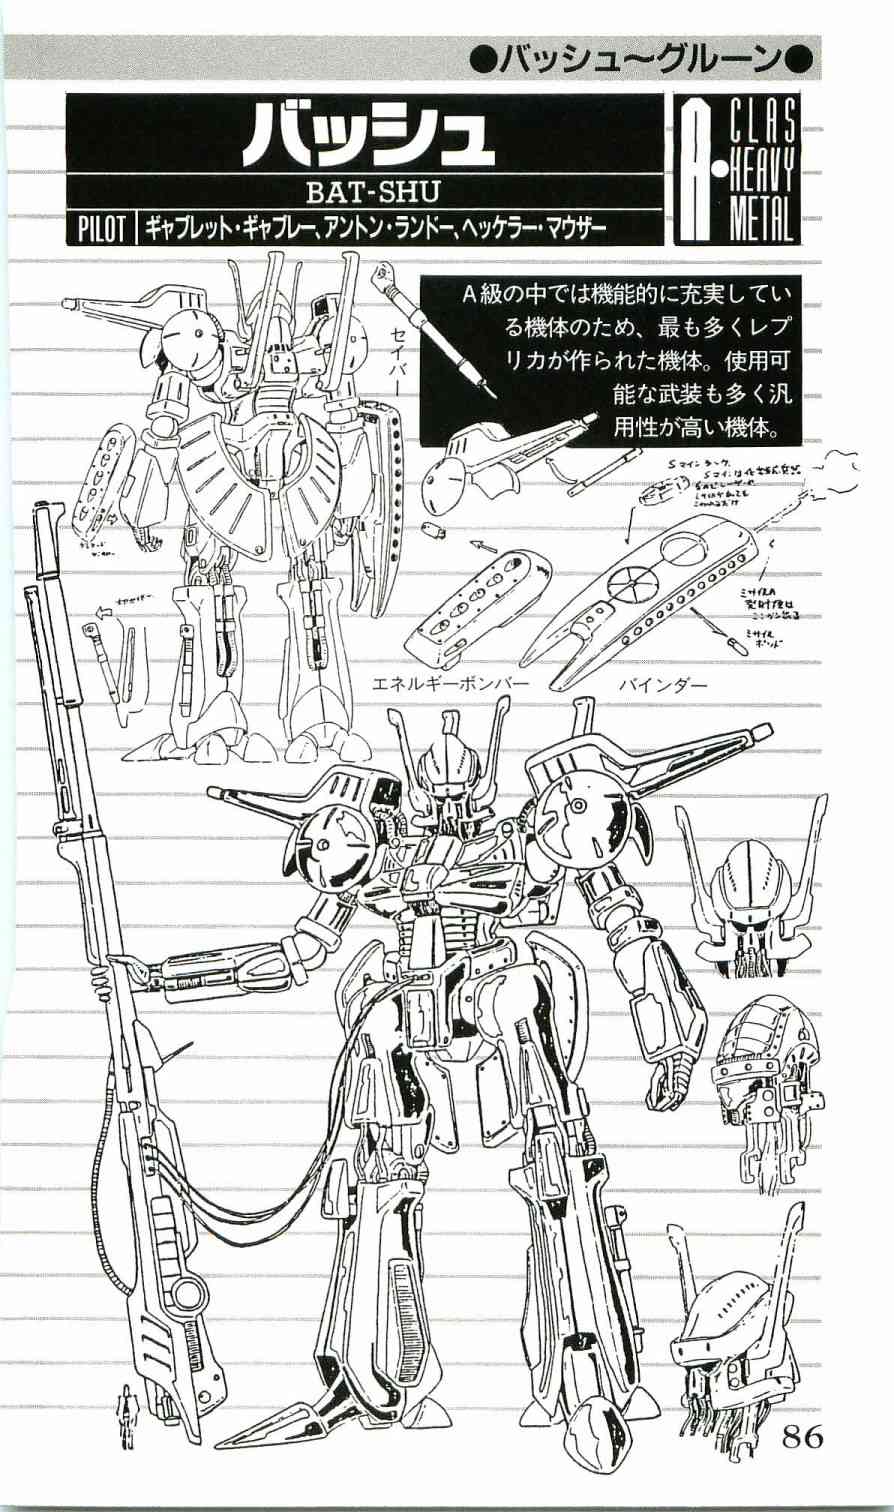 ●バッシュ〜グルーン●
バッシュ
BAT-SHU
PILOT ギャブレット・ギャブレー、アントン・ランドー、ヘッケラー・マウザー
A・CLAS
HEAVY
METAL
A級の中では機能的に充実してい
る機体のため、最も多くレプ
リカが作られた機体。使用可
能な武装も多く汎
用性が高い機体。
セイバー
エネルギーボンバー
バインダー
86